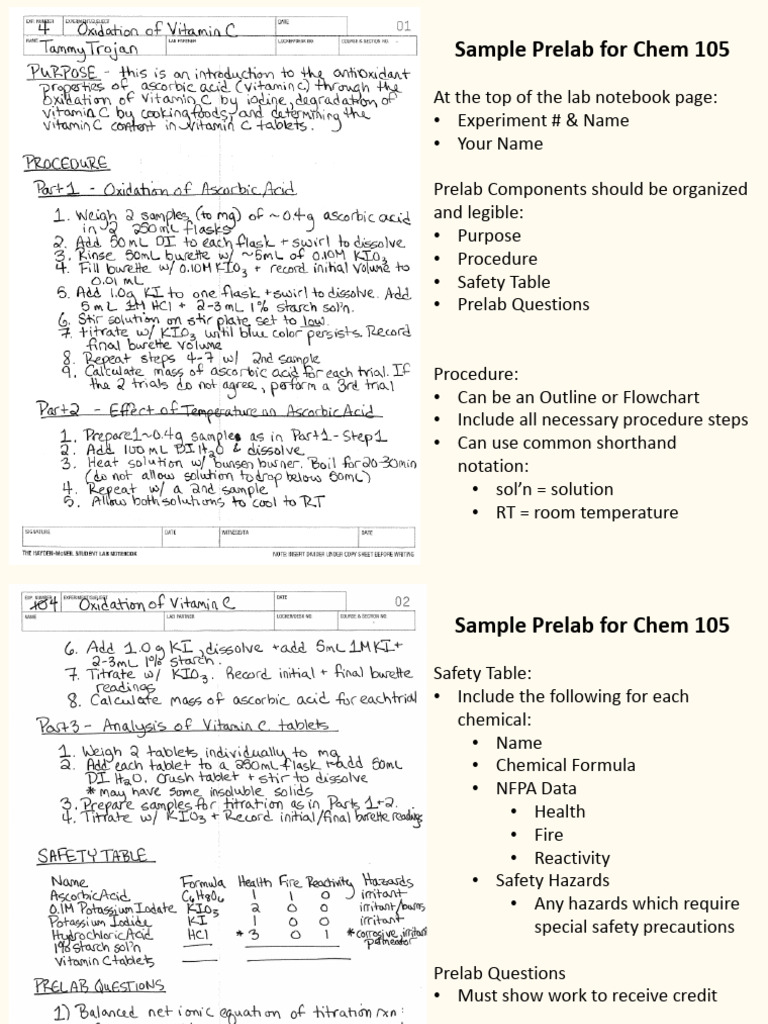 EXP. NUMBER
EXPERIMENT/SUBJECT
DATE
01
4
Oxidation of Vitamin C
NAME
LAB PARTNER
LOCKER/DESK NO.
COURSE & SECTION NO.
Tammy Trojan
PURPOSE - this is an introduction to the antioxidant
properties of ascorbic acid (vitamin c) through the
oxidation of vitamin C by iodine, degradation of
vitamin C by cooking foods, and determining the
vitamin C content in vitamin C tablets.
PROCEDURE
Part 1 - Oxidation of Ascorbic Acid
1. Weigh 2 samples (to mg) of ~0.4g ascorbic acid
in 2 250 mL flasks
2. Add 50 mL DI to each flask + swirl to dissolve
3. Rinse 50mL burette w/ ~5mL of 0.10M KIO3
4. Fill burette w/ 0.10M KIO3 + record initial volume to
0.01 mL
5. Add 1.0g KI to one flask + swirl to dissolve. Add
5 mL 1M HCl + 2-3 mL 1% starch sol'n.
6. Stir solution on stir plate set to low.
7. titrate w/ KIO3 until blue color persists. Record
final burette volume
8. Repeat steps 4-7 w/ 2nd sample
9. Calculate mass of ascorbic acid for each trial. If
the 2 trials do not agree, perform a 3rd trial
Part 2 - Effect of Temperature on Ascorbic Acid
1. Prepare 1 ~0.4g sample as in Part 1 - Step 1
2. Add 100 mL DI H2O & dissolve
3. Heat solution w/ bunsen burner. Boil for 20-30min
(do not allow solution to drop below 50mL)
4. Repeat w/ a 2nd sample
5. Allow both solutions to cool to RT
SIGNATURE
DATE
WITNESS/TA
DATE
THE HAYDEN-McNEIL STUDENT LAB NOTEBOOK
NOTE: INSERT DIVIDER UNDER COPY SHEET BEFORE WRITING
Sample Prelab for Chem 105
At the top of the lab notebook page:
• Experiment # & Name
• Your Name
Prelab Components should be organized
and legible:
• Purpose
• Procedure
• Safety Table
• Prelab Questions
Procedure:
• Can be an Outline or Flowchart
• Include all necessary procedure steps
• Can use common shorthand
notation:
• sol'n = solution
• RT = room temperature
EXP. NUMBER
EXPERIMENT/SUBJECT
DATE
02
4
Oxidation of Vitamin C
NAME
LAB PARTNER
LOCKER/DESK NO.
COURSE & SECTION NO.
6. Add 1.0g KI, dissolve + add 5mL 1M KI +
2-3mL 1% starch.
7. Titrate w/ KIO3. Record initial + final burette
readings
8. Calculate mass of ascorbic acid for each trial
Part 3 - Analysis of Vitamin C tablets
1. Weigh 2 tablets individually to mg
2. Add each tablet to a 250mL flask + add 50mL
DI H2O. Crush tablet + stir to dissolve
* may have some insoluble solids
3. Prepare samples for titration as in Parts 1+2.
4. Titrate w/ KIO3 + Record initial/final burette readings
SAFETY TABLE
Name Formula Health Fire Reactivity Hazards
Ascorbic Acid C6H8O6 1 1 0 irritant
0.1M Potassium Iodate KIO3 2 0 0 irritant/burns
Potassium Iodide KI 1 0 0 irritant
Hydrochloric Acid HCl *3 0 1 *corrosive, irritant
permeator
1% starch sol'n
Vitamin C tablets
PRELAB QUESTIONS
1) Balanced net ionic equation of titration rxn:
Sample Prelab for Chem 105
Safety Table:
• Include the following for each
chemical:
• Name
• Chemical Formula
• NFPA Data
• Health
• Fire
• Reactivity
• Safety Hazards
• Any hazards which require
special safety precautions
Prelab Questions
• Must show work to receive credit